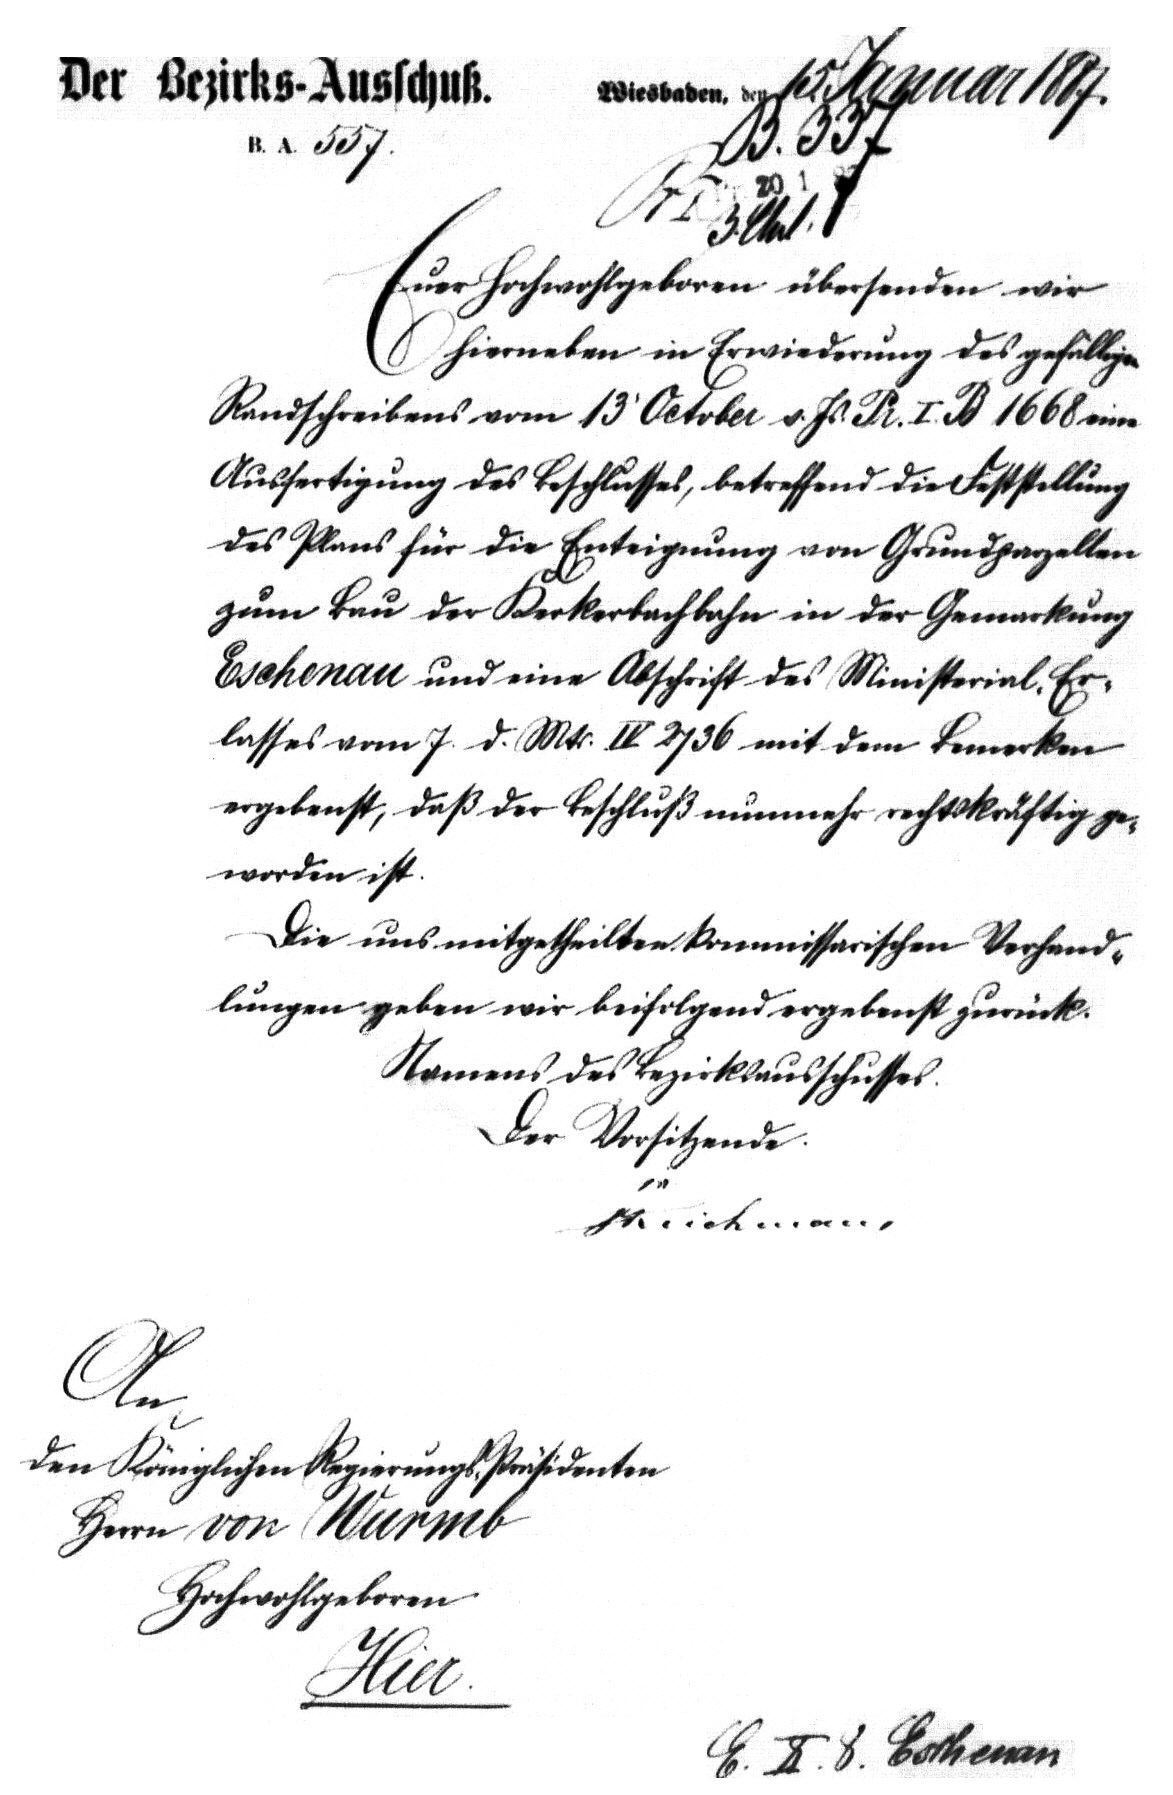 Der Bezirks-Ausschuß. Wiesbaden, den 15 Januar 1887.
B. A. 557. B. 337
Pr I 20 1
3.
Euer Hochwohlgeboren übersenden wir
hierneben in Erwiederung des gefälligen
Randschreibens vom 13' October v. Js. Pr. I. B 1668 eine
Ausfertigung des Beschlusses, betreffend die Feststellung
des Plans für die Enteignung von Grundparzellen
zum Bau der Kerkerbachbahn in der Gemarkung
Eschenau und eine Abschrift des Ministerial-Er-
lasses vom 7. d. Mts. IV 2736 mit dem Bemerken
ergebenst, daß der Beschluß nunmehr rechtskräftig ge-
worden ist.
Die uns mitgetheilten kommissarischen Verhand-
lungen geben wir beifolgend ergebenst zurück.
Namens des Bezirksausschusses.
Der Vorsitzende.
An
den Königlichen Regierungs-Präsidenten
Herrn von Wurmb
Hochwohlgeboren
Hier.
E. II. 8. Eschenau